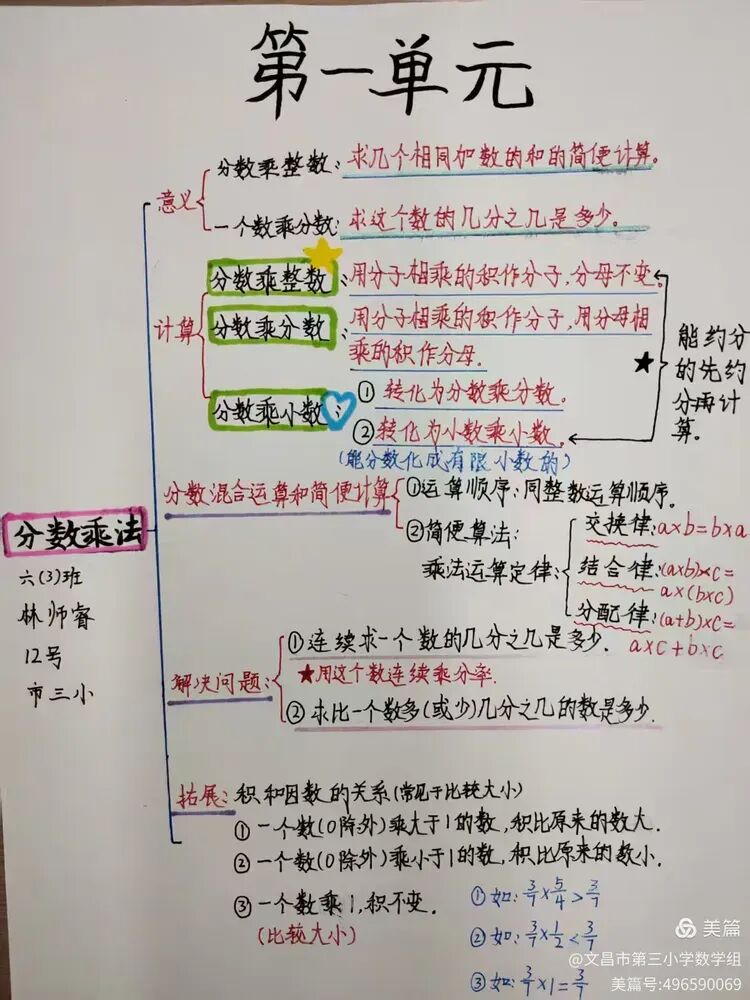 第一单元
意义
分数乘整数:求几个相同加数的和的简便计算。
一个数乘分数:求这个数的几分之几是多少。
计算
分数乘整数:用分子相乘的积作分子,分母不变。
分数乘分数:用分子相乘的积作分子,用分母相
乘的积作分母。
分数乘小数:①转化为分数乘分数。
②转化为小数乘小数。
(能分数化成有限小数的)
★能约分
的先约
分再计
算。
分数乘法
六(3)班
林师睿
12号
市三小
分数混合运算和简便计算
①运算顺序:同整数运算顺序。
②简便算法:
乘法运算定律:
交换律:a×b=b×a
结合律:(a×b)×c=
a×(b×c)
分配律:(a+b)×c=
a×c+b×c
解决问题:
①连续求一个数的几分之几是多少.
★用这个数连续乘分率.
②求比一个数多(或少)几分之几的数是多少.
拓展:积和因数的关系(常见于比较大小)
①一个数(0除外)乘大于1的数,积比原来的数大.
②一个数(0除外)乘小于1的数,积比原来的数小.
③一个数乘1,积不变.
(比较大小)
①如:3/7×5/4>3/7
②如:3/7×1/2<3/7
③如:3/7×1=3/7
美篇
@文昌市第三小学数学组
美篇号:496590069